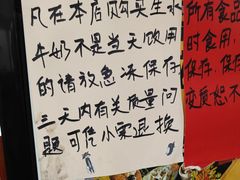 凡在本店购买生水
牛奶不是当天饮用
的请放急冻保存
三天内有关质量问
题可凭小票退换
所有食品
时食用,
保存,保
变质恕不